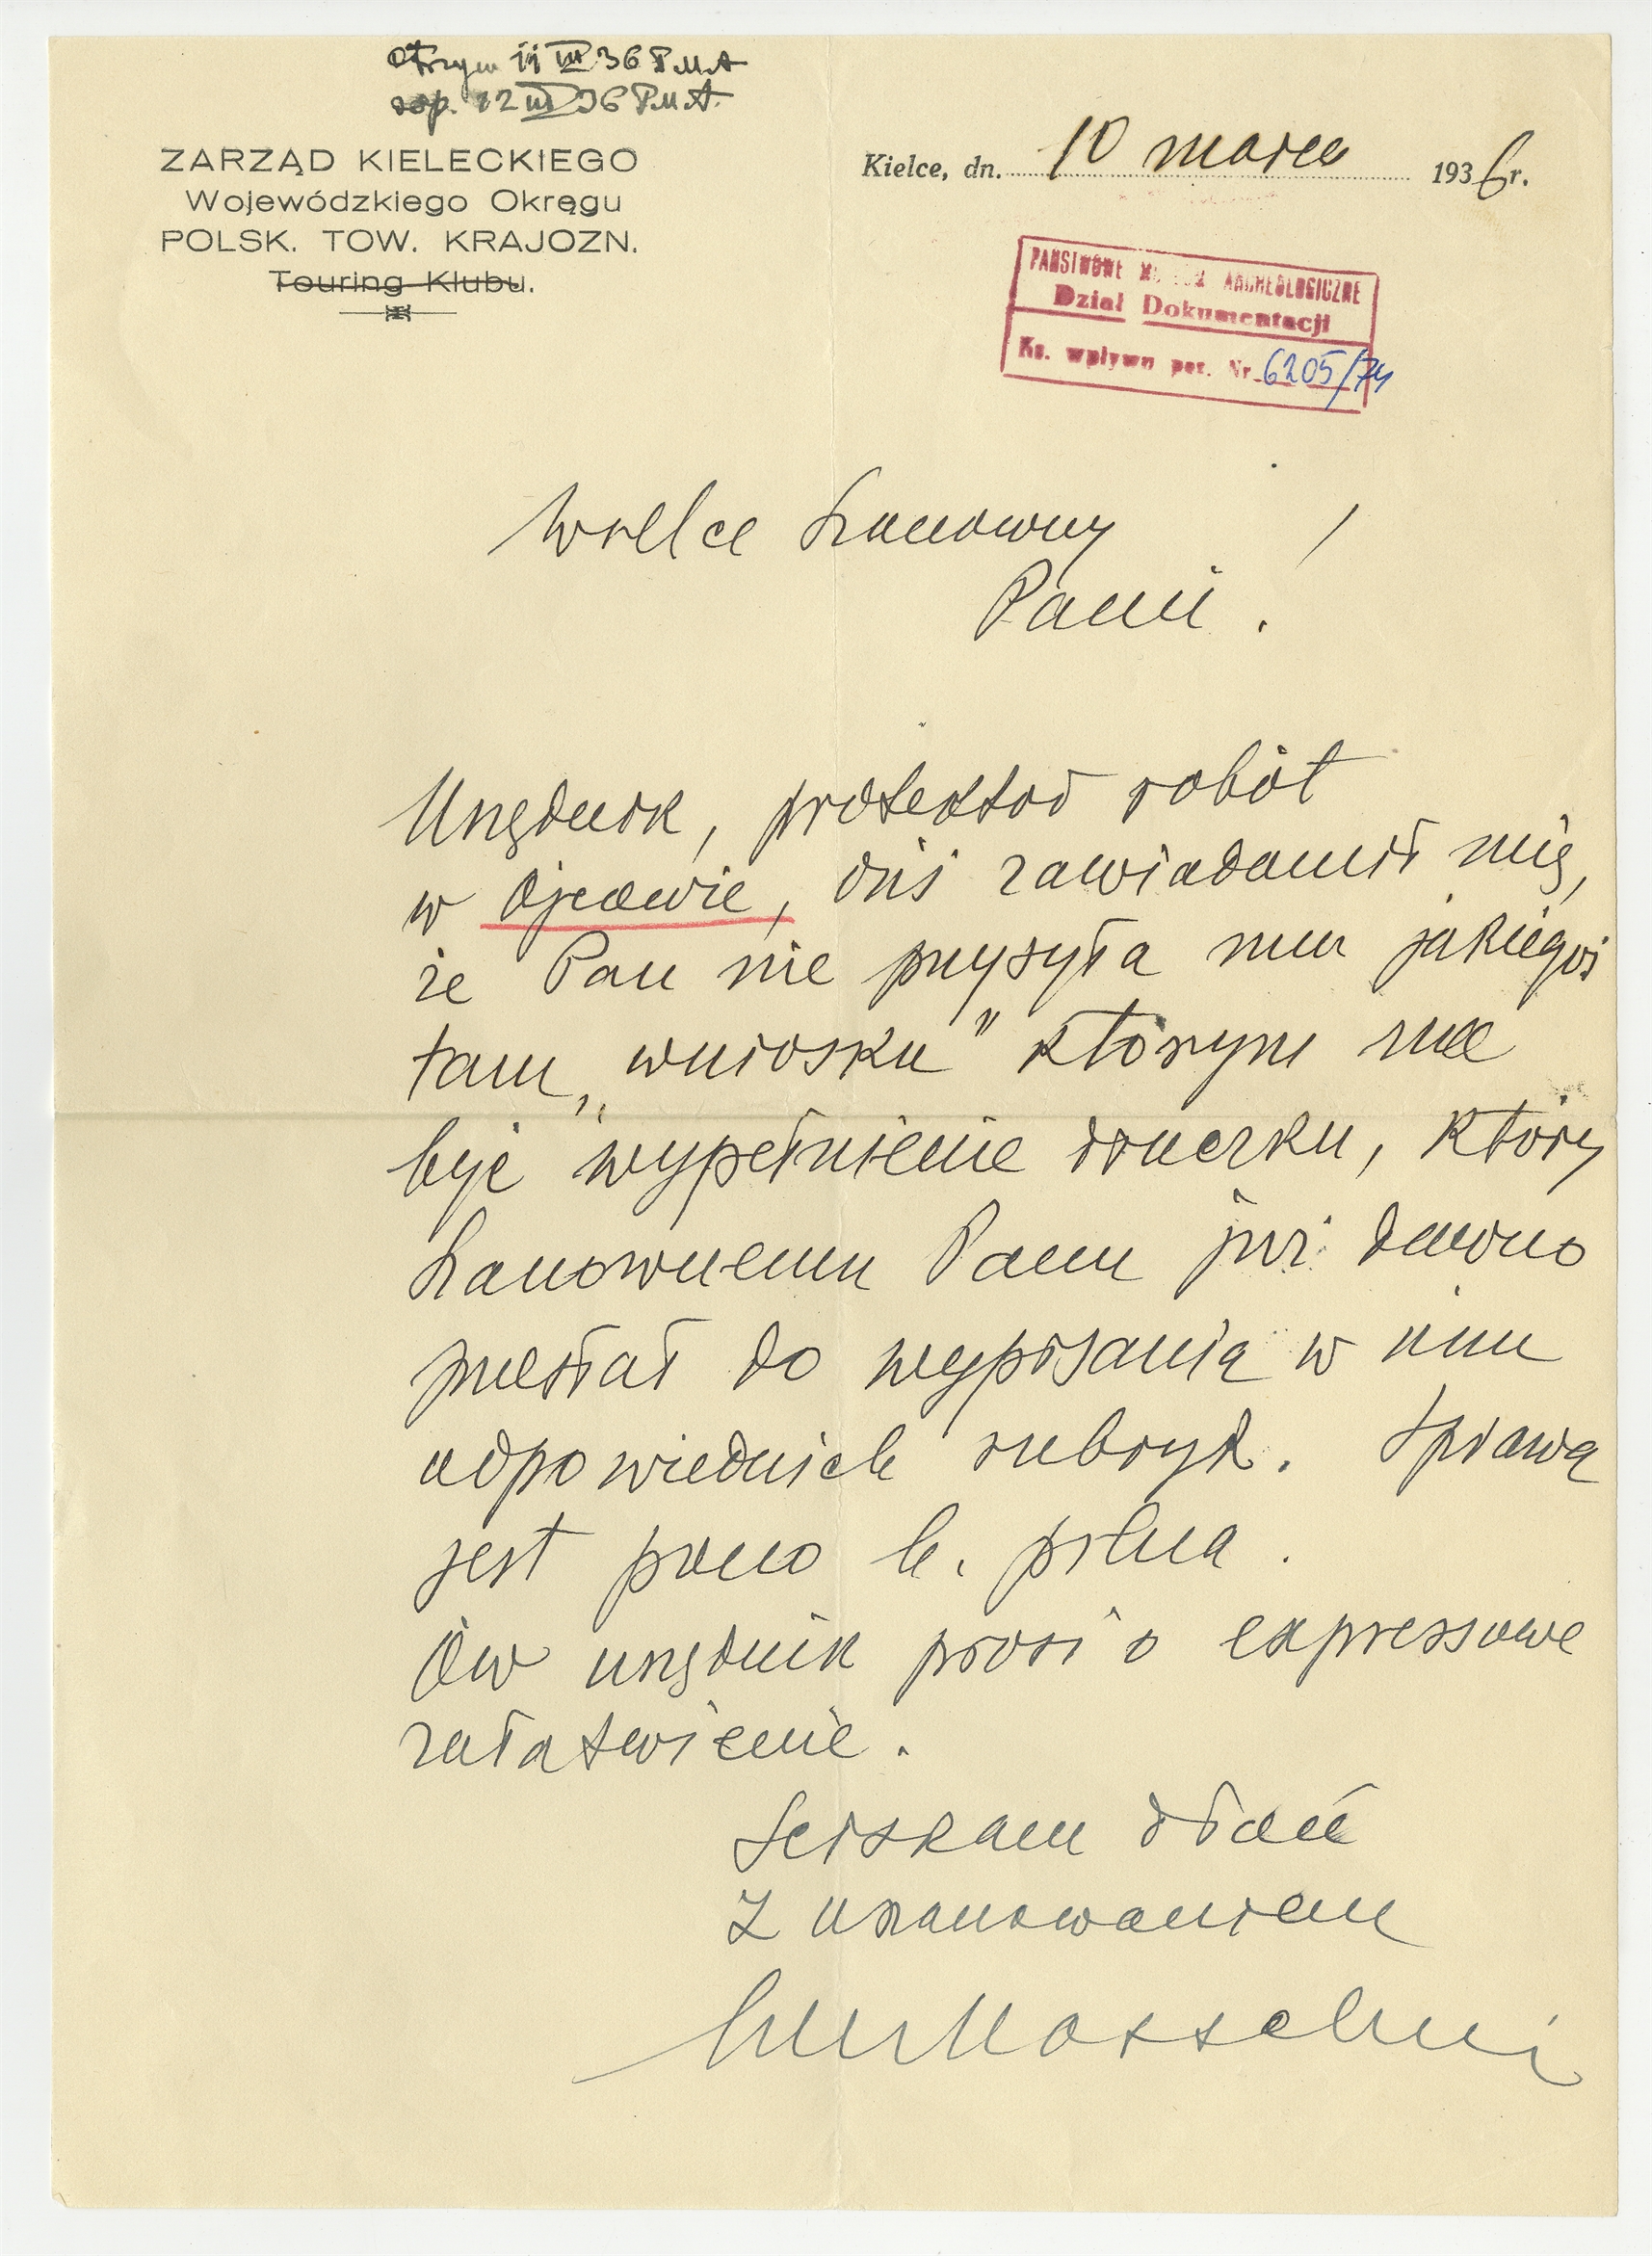 otrzym 11 III 36 P.M.A
odp. 12 III 36 P.M.A.
ZARZĄD KIELECKIEGO
Wojewódzkiego Okręgu
POLSK. TOW. KRAJOZN.
Touring Klubu.
Kielce, dn. 10 marca 1936 r.
PAŃSTWOWE MUZEUM ARCHEOLOGICZNE
Dział Dokumentacji
Ks. wpływu poz. Nr 6205/74
Wielce Szanowny
Panie!
Urzędnik, protektor robót
w Ojcowie, dziś zawiadamił mię,
że Pan nie przysyła mu jakiegoś
tam „wniosku" którym ma
być wypełnienie druczku, który
Szanownemu Panu już dawno
przesłał do wypisania w nim
odpowiednich rubryk. Sprawa
jest pono b. pilna.
Ów urzędnik prosi o expressowe
załatwienie.
Ściskam dłoń
Z uszanowaniem